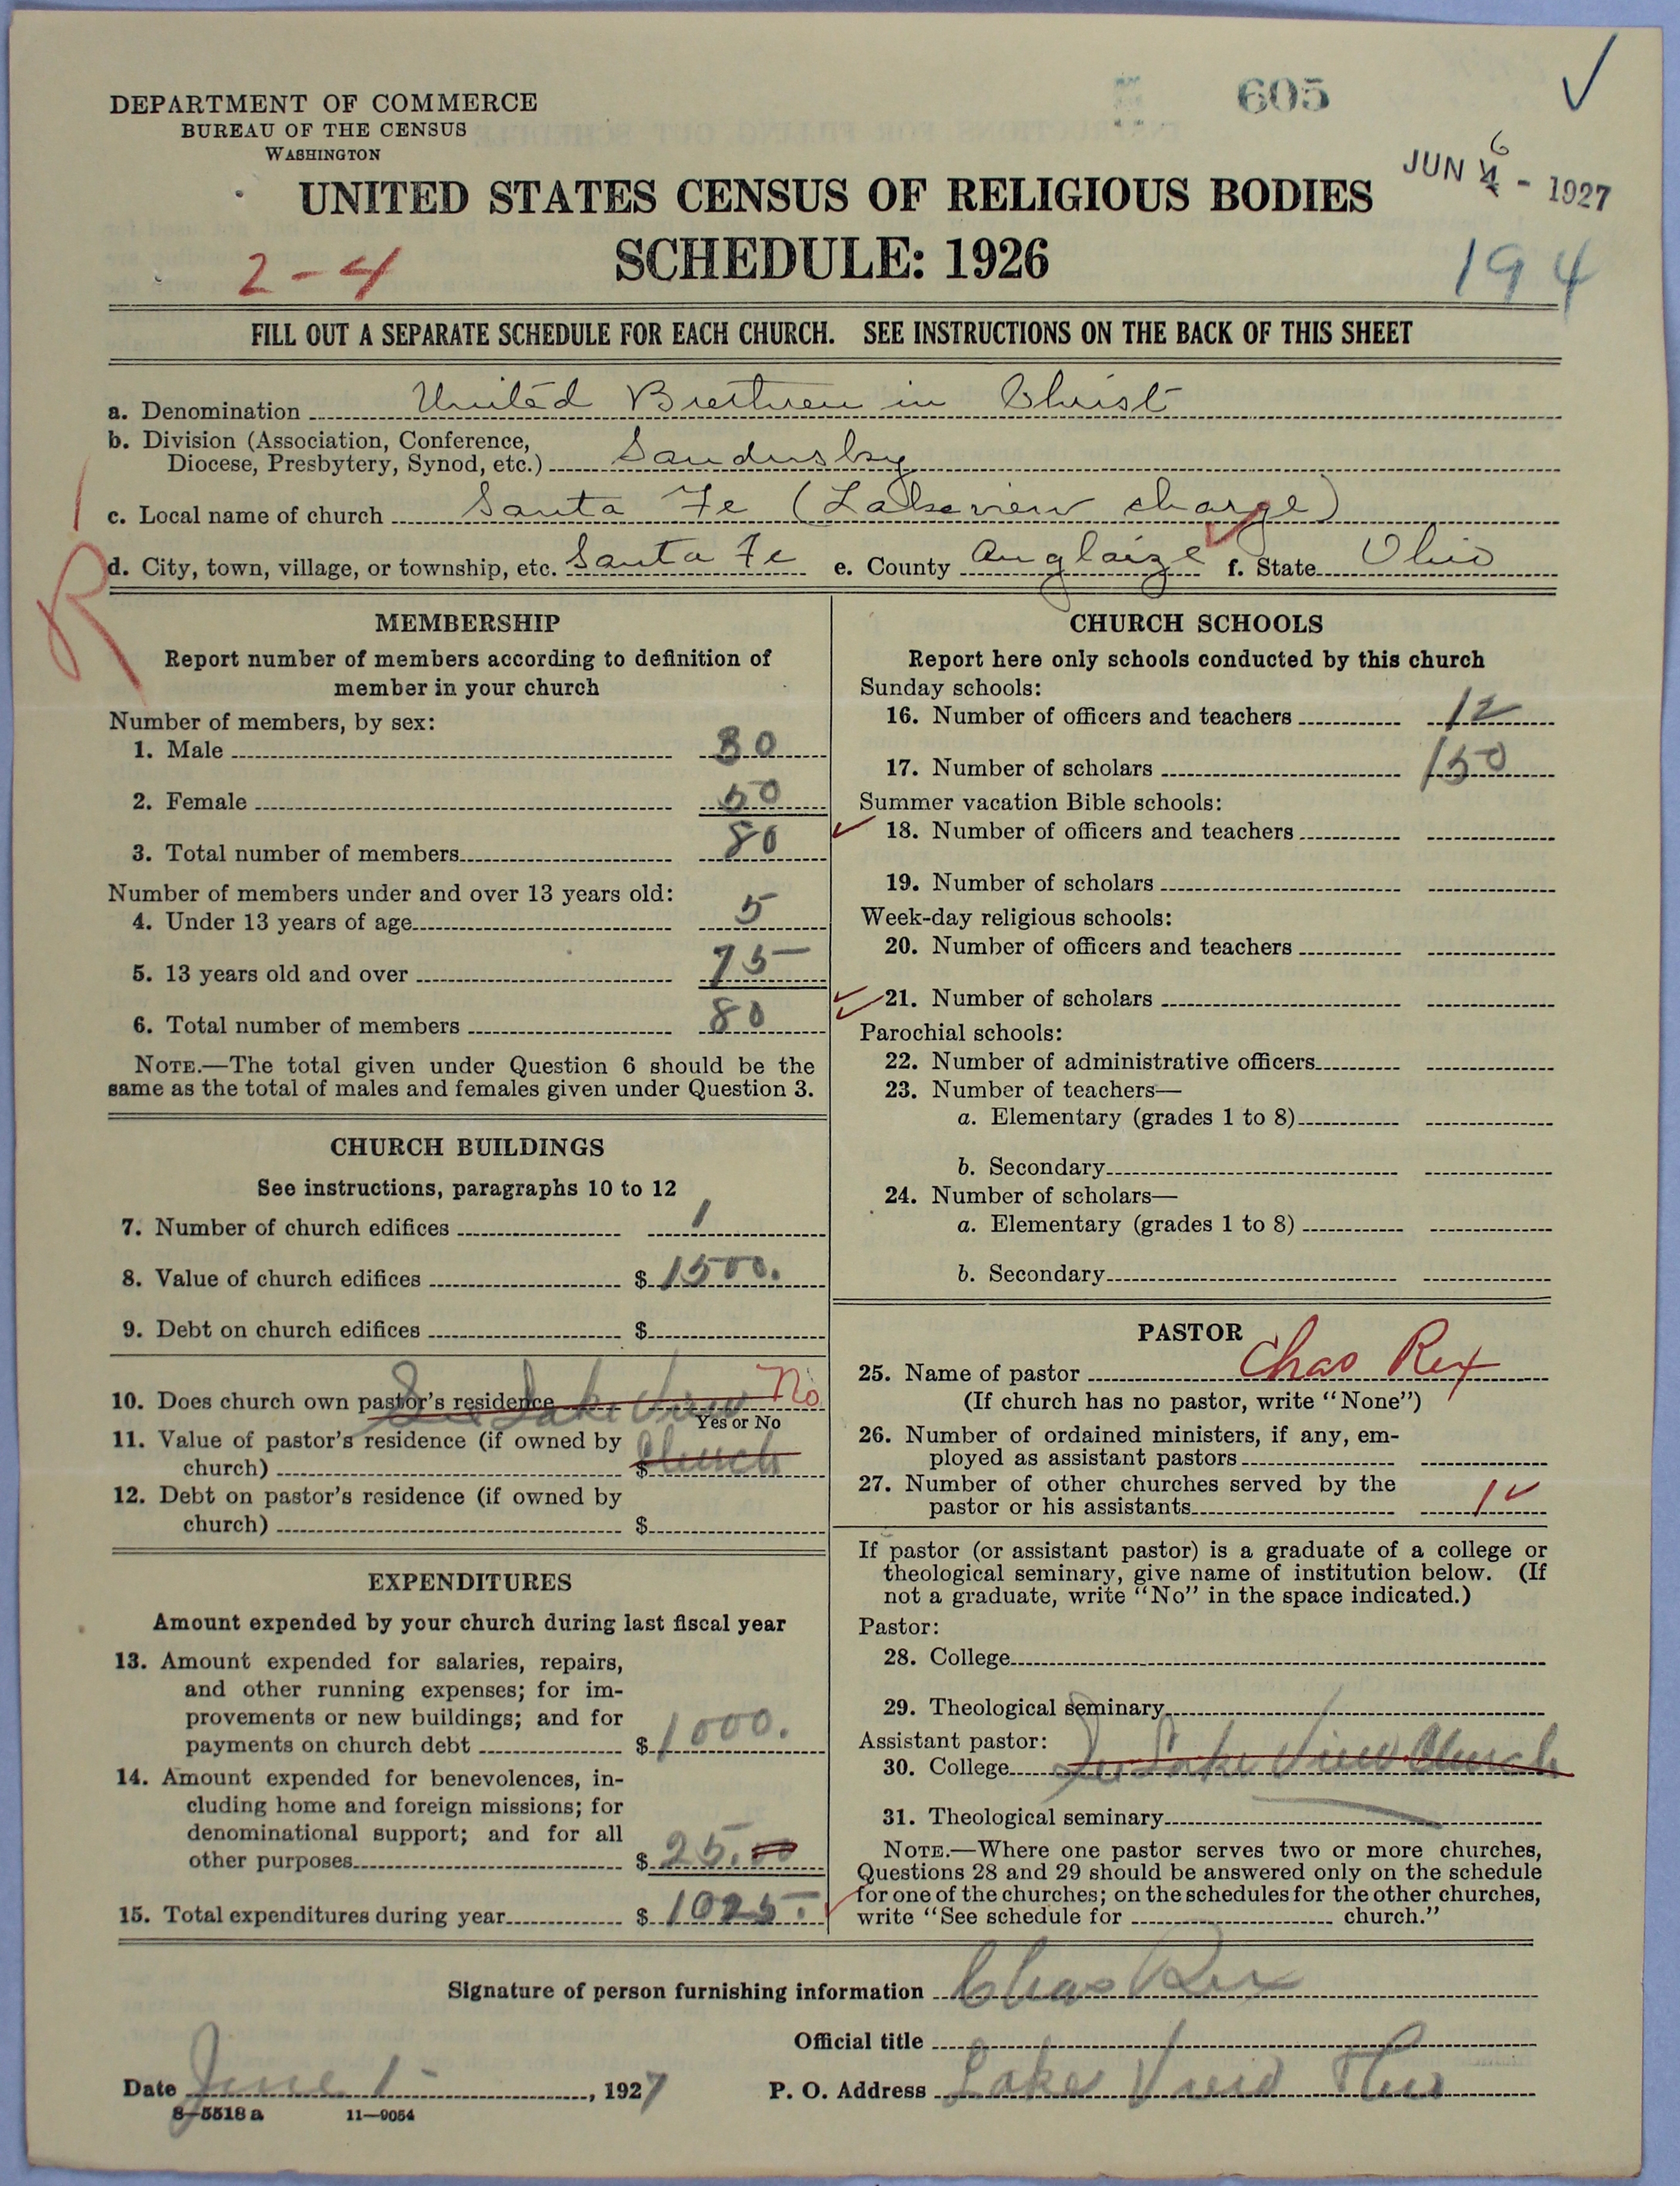 605
✓
DEPARTMENT OF COMMERCE
BUREAU OF THE CENSUS
WASHINGTON
JUN 4 6 - 1927
UNITED STATES CENSUS OF RELIGIOUS BODIES
SCHEDULE: 1926
2-4
194
FILL OUT A SEPARATE SCHEDULE FOR EACH CHURCH. SEE INSTRUCTIONS ON THE BACK OF THIS SHEET
a. Denomination United Brethren in Christ
b. Division (Association, Conference,
Diocese, Presbytery, Synod, etc.) Sandusky
c. Local name of church Santa Fe (Lakeview charge)
d. City, town, village, or township, etc. Santa Fe e. County Auglaize f. State Ohio
R
MEMBERSHIP
Report number of members according to definition of
member in your church
Number of members, by sex:
1. Male 30
2. Female 50
3. Total number of members 80
Number of members under and over 13 years old:
4. Under 13 years of age 5
5. 13 years old and over 75
6. Total number of members 80
NOTE.—The total given under Question 6 should be the
same as the total of males and females given under Question 3.
CHURCH BUILDINGS
See instructions, paragraphs 10 to 12
7. Number of church edifices 1
8. Value of church edifices $1500.
9. Debt on church edifices $
10. Does church own pastor's residence See Lake View No
Yes or No
11. Value of pastor's residence (if owned by
church) $ Church
12. Debt on pastor's residence (if owned by
church) $
EXPENDITURES
Amount expended by your church during last fiscal year
13. Amount expended for salaries, repairs,
and other running expenses; for im-
provements or new buildings; and for
payments on church debt $1000.
14. Amount expended for benevolences, in-
cluding home and foreign missions; for
denominational support; and for all
other purposes $25.00
15. Total expenditures during year $1025.
CHURCH SCHOOLS
Report here only schools conducted by this church
Sunday schools:
16. Number of officers and teachers 12
17. Number of scholars 150
Summer vacation Bible schools:
18. Number of officers and teachers
19. Number of scholars
Week-day religious schools:
20. Number of officers and teachers
21. Number of scholars
Parochial schools:
22. Number of administrative officers
23. Number of teachers—
a. Elementary (grades 1 to 8)
b. Secondary
24. Number of scholars—
a. Elementary (grades 1 to 8)
b. Secondary
PASTOR
25. Name of pastor Chas Rex
(If church has no pastor, write "None")
26. Number of ordained ministers, if any, em-
ployed as assistant pastors
27. Number of other churches served by the
pastor or his assistants 1 ✓
If pastor (or assistant pastor) is a graduate of a college or
theological seminary, give name of institution below. (If
not a graduate, write "No" in the space indicated.)
Pastor:
28. College
29. Theological seminary
Assistant pastor:
30. College See Lake View Church
31. Theological seminary
NOTE.—Where one pastor serves two or more churches,
Questions 28 and 29 should be answered only on the schedule
for one of the churches; on the schedules for the other churches,
write "See schedule for church."
Signature of person furnishing information Chas Rex
Official title
Date June 1 -, 1927 P. O. Address Lake View Ohio
8—5518 a 11—9054